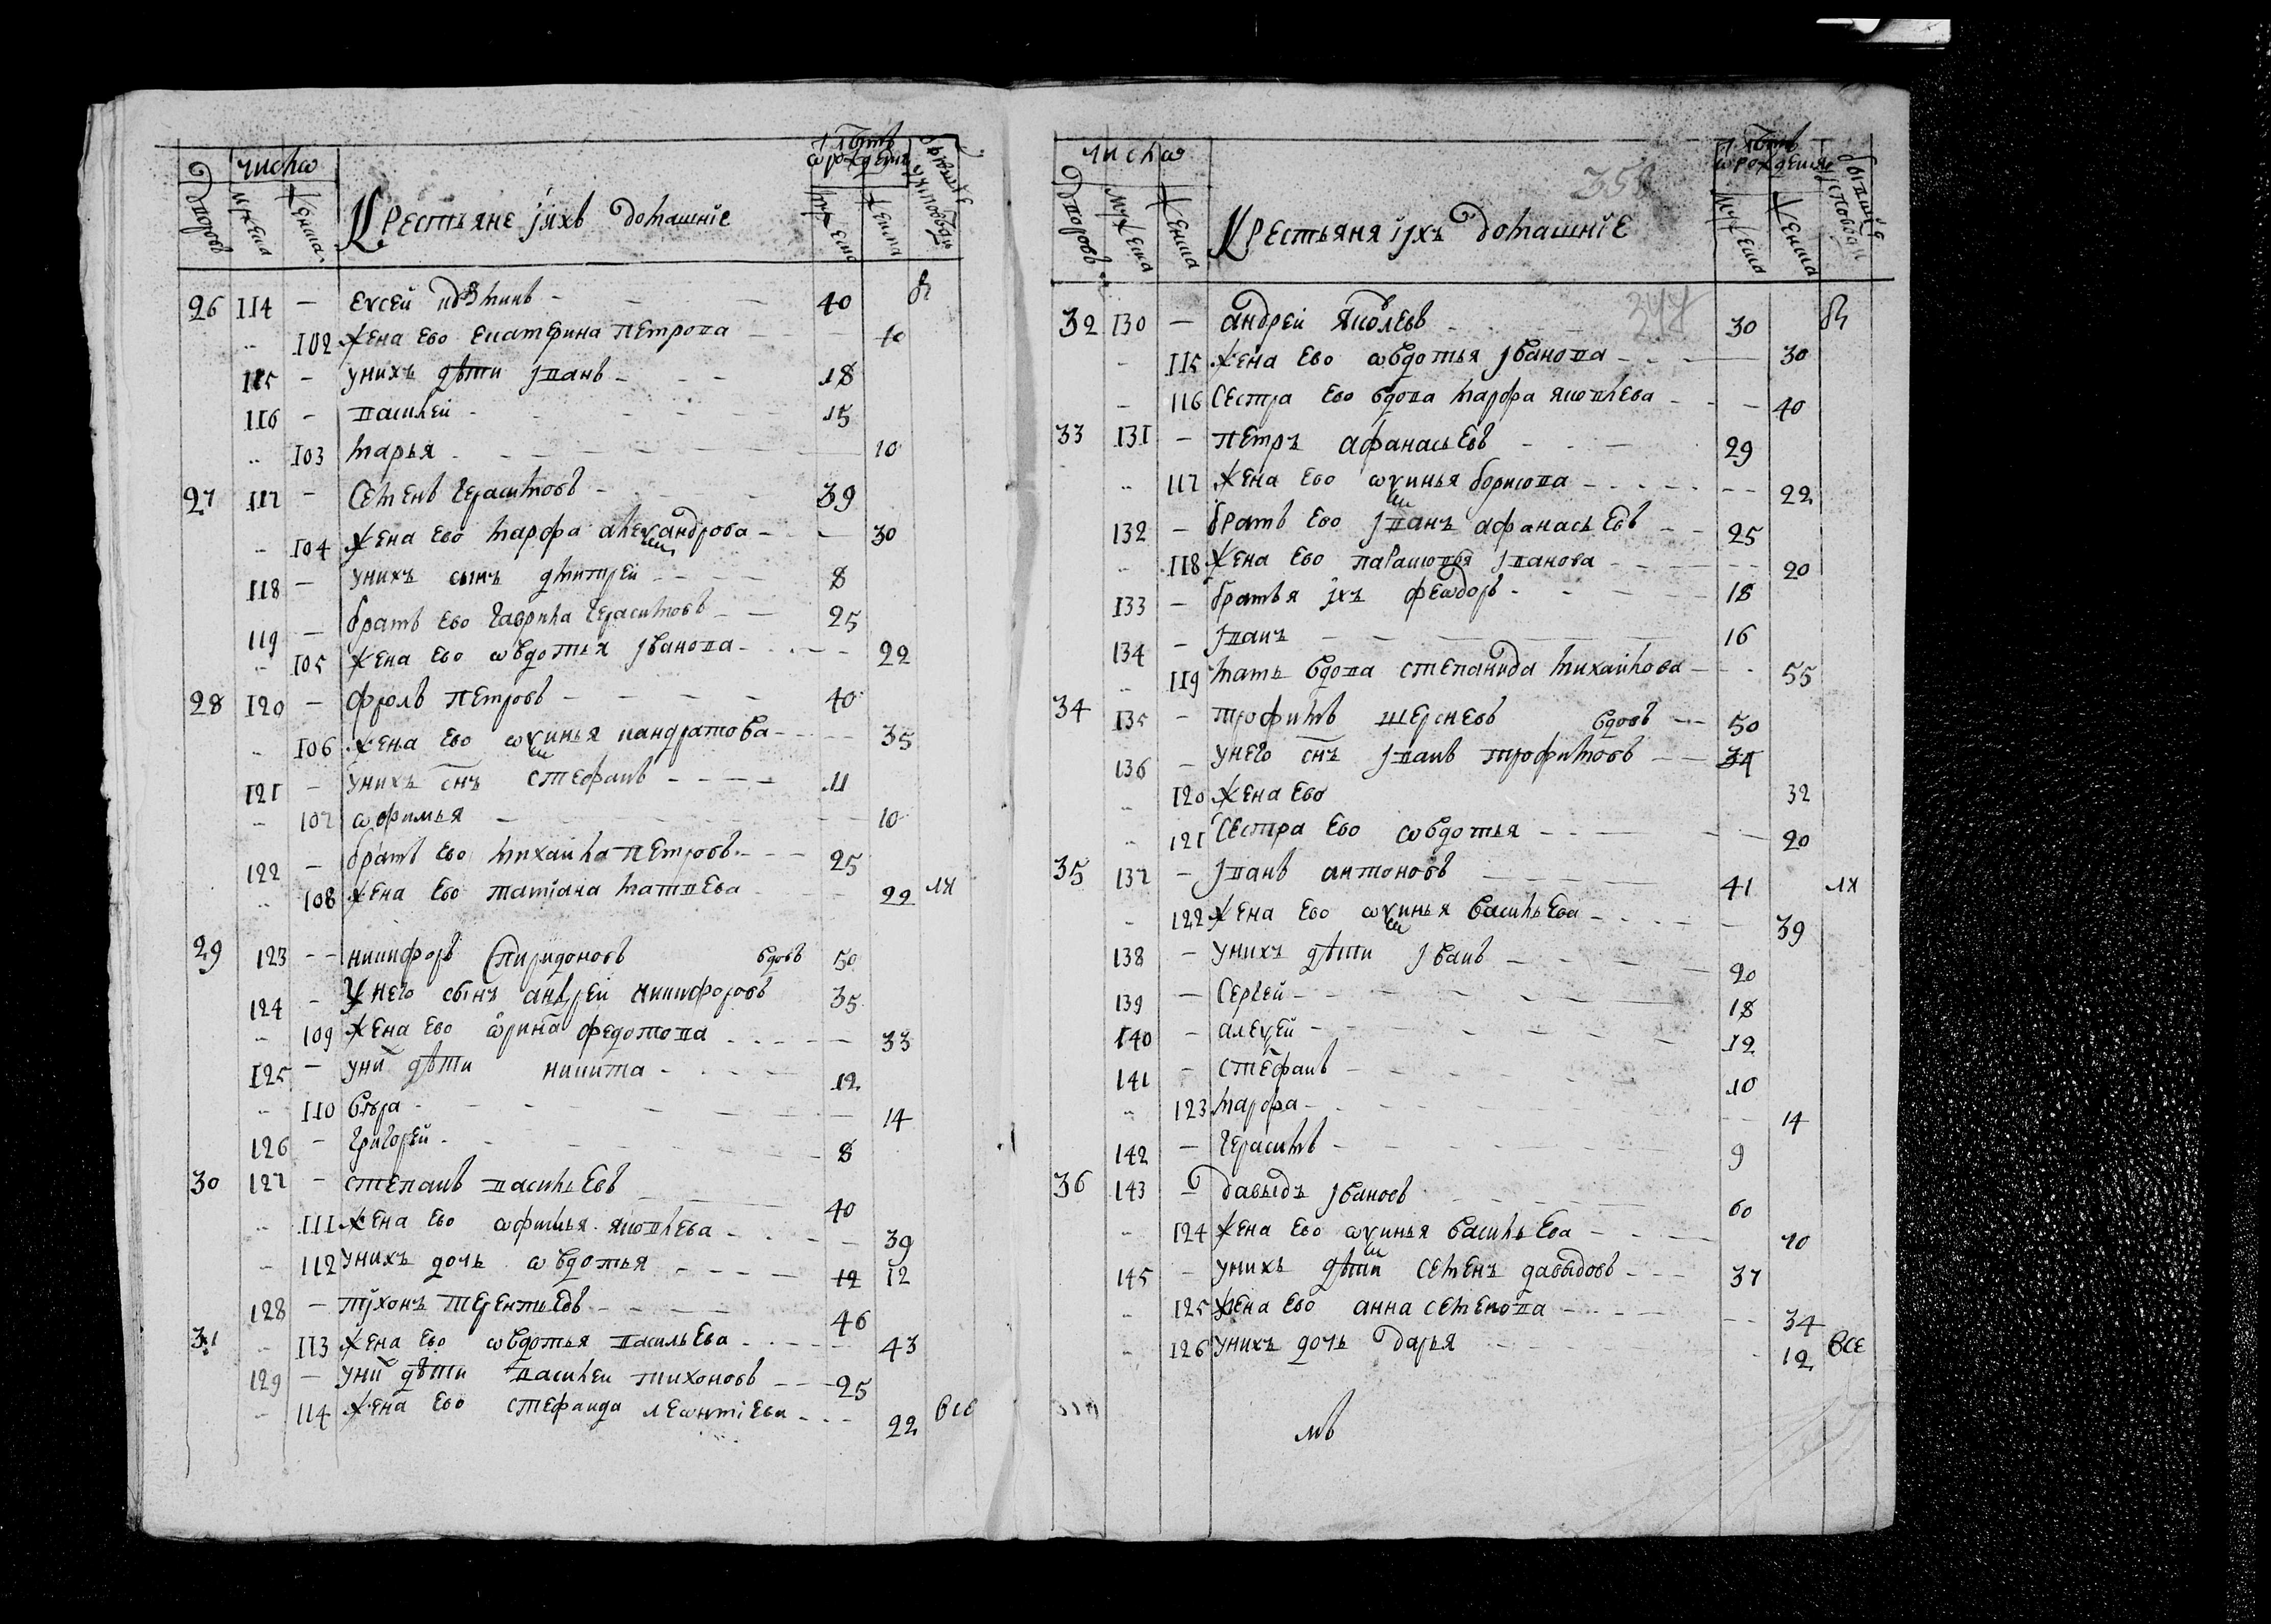 число
лѣтъ
ѿ рождения
бывшие
у исповеди
Дворовъ
мужеска
женска
Крестьяне ихъ домашние
мужеска
женска
26 114 — Еѵсей — 40 бы
102 жена ево екатерина петрова — 40
115 — у нихъ дѣти Иванъ — 18
116 — василей — 15
103 марья — 10
27 117 — Семенъ герасимовъ — 39
104 жена ево марфа алеѯандрова — 30
118 — у нихъ сынъ дмитрей — 8
119 — братъ ево гаврила герасимовъ — 25
105 жена ево ѡвдотья иванова — 22
28 120 — фролъ петровъ — 40
106 жена ево ѡѯинья кандратова — 35
121 — у нихъ снъ стефанъ — 11
107 ѡфимья — 10
122 — братъ ево михаила петровъ — 25
108 жена ево татиана матвева — 22 ля
29 123 — никифоръ спиридоновъ вдовъ 50
124 — У него сынъ андрей никифоровъ 35
109 жена ево ѡрина федотова — 33
125 — у ни дѣти никита — 12
110 вѣра — 14
126 — григорей — 8
30 127 — степанъ васильевъ 40
111 жена ево ѡфимья яковлева — 39
112 у нихъ дочь ѡвдотья — 12 12
128 — тихонъ терентьевъ — 46
31 113 жена ево ѡвдотья васильева — 43
129 — у ни дѣти василеи тихоновъ — 25
114 жена ево стефанида леѡнтиева — 22 все
число
358
лѣтъ
ѿ рождения
бывшие
у исповеди
Дворовъ
мужеска
женска
Крестьяня ихъ домашние
мужеска
женска
347
32 130 — андрей Яковлевъ — 30 бы
115 жена ево ѡвдотья иванова — 30
116 Сестра ево вдова марфа яковлева — 40
33 131 — петръ афанасьевъ — 29
117 жена ево ѡѯинья борисова — 22
132 — братъ ево иванъ афанасьевъ — 25
118 жена ево парасковья иванова — 20
133 — братья ихъ феѡдоръ — 18
134 — иванъ — 16
119 мать вдова степанида михаилова — 55
34 135 — трофимъ вдовъ — 50
136 — у него снъ иванъ трофимовъ — 34
120 жена ево 32
121 Сестра ево ѡвдотья — 20
35 137 — иванъ антоновъ — 41 ля
122 жена ево ѡѯинья васильева — 39
138 — у нихъ дѣти иванъ — 20
139 — Сергей — 18
140 — алеѯей — 12
141 — стефанъ — 10
123 марфа — 14
142 — герасимъ — 9
36 143 — давыдъ ивановъ — 60
124 жена ево ѡѯинья васильева — 40
145 — у нихъ дѣти семенъ давыдовъ — 37
125 жена ево анна семенова — 34
126 у нихъ дочь дарья — 12 все
мв